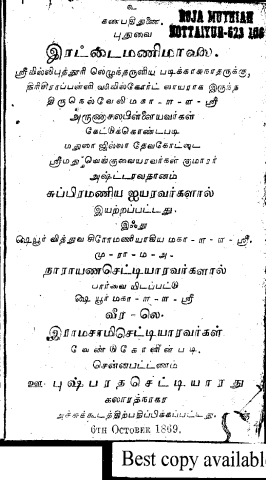 உ
கணபதிதுணை.
புதுவை
இரட்டைமணிமாலை.
ROJA MUTHIAH
KOTTAIYUR-623 106
ஸ்ரீவில்லிபுத்தூரி லெழுந்தருளிய படிக்காசுநாதருக்கு,
திரிசிராப்பள்ளி வயிலகோர்ட் லாயராக இருந்த
திருநெல்வேலி மகா-ள-ள-ஸ்ரீ
அருணாசலபிள்ளையவர்கள்
கேட்டுக்கொண்டபடி
மதுரை ஜில்லா தேவகோட்டை
ஸ்ரீமது வெங்குவையரவர்கள் குமாரர்
அஷ்டாவதானம்
சுப்பிரமணிய ஐயரவர்களால்
இயற்றப்பட்டது.
இஃது
ஷெயூர் வித்துவசிரோமணியாகிய மகா-ள-ள-ஸ்ரீ.
மு-ரா-ம-அ-
நாராயணசெட்டியாரவர்களால்
பார்வை யிடப்பட்டு
ஷெயூர் மகா-ள-ள-ஸ்ரீ
வீர-லெ.
இராமசாமிசெட்டியாரவர்கள்
வேண்டுகோளின்படி.
சென்னபட்டணம்
ஊ. புஷ்பரதசெட்டியாரது
கலாரத்நாகர
அச்சுக்கூடத்திற்பதிப்பிக்கப்பட்டது.
6TH OCTOBER 1869.
Best copy availabl